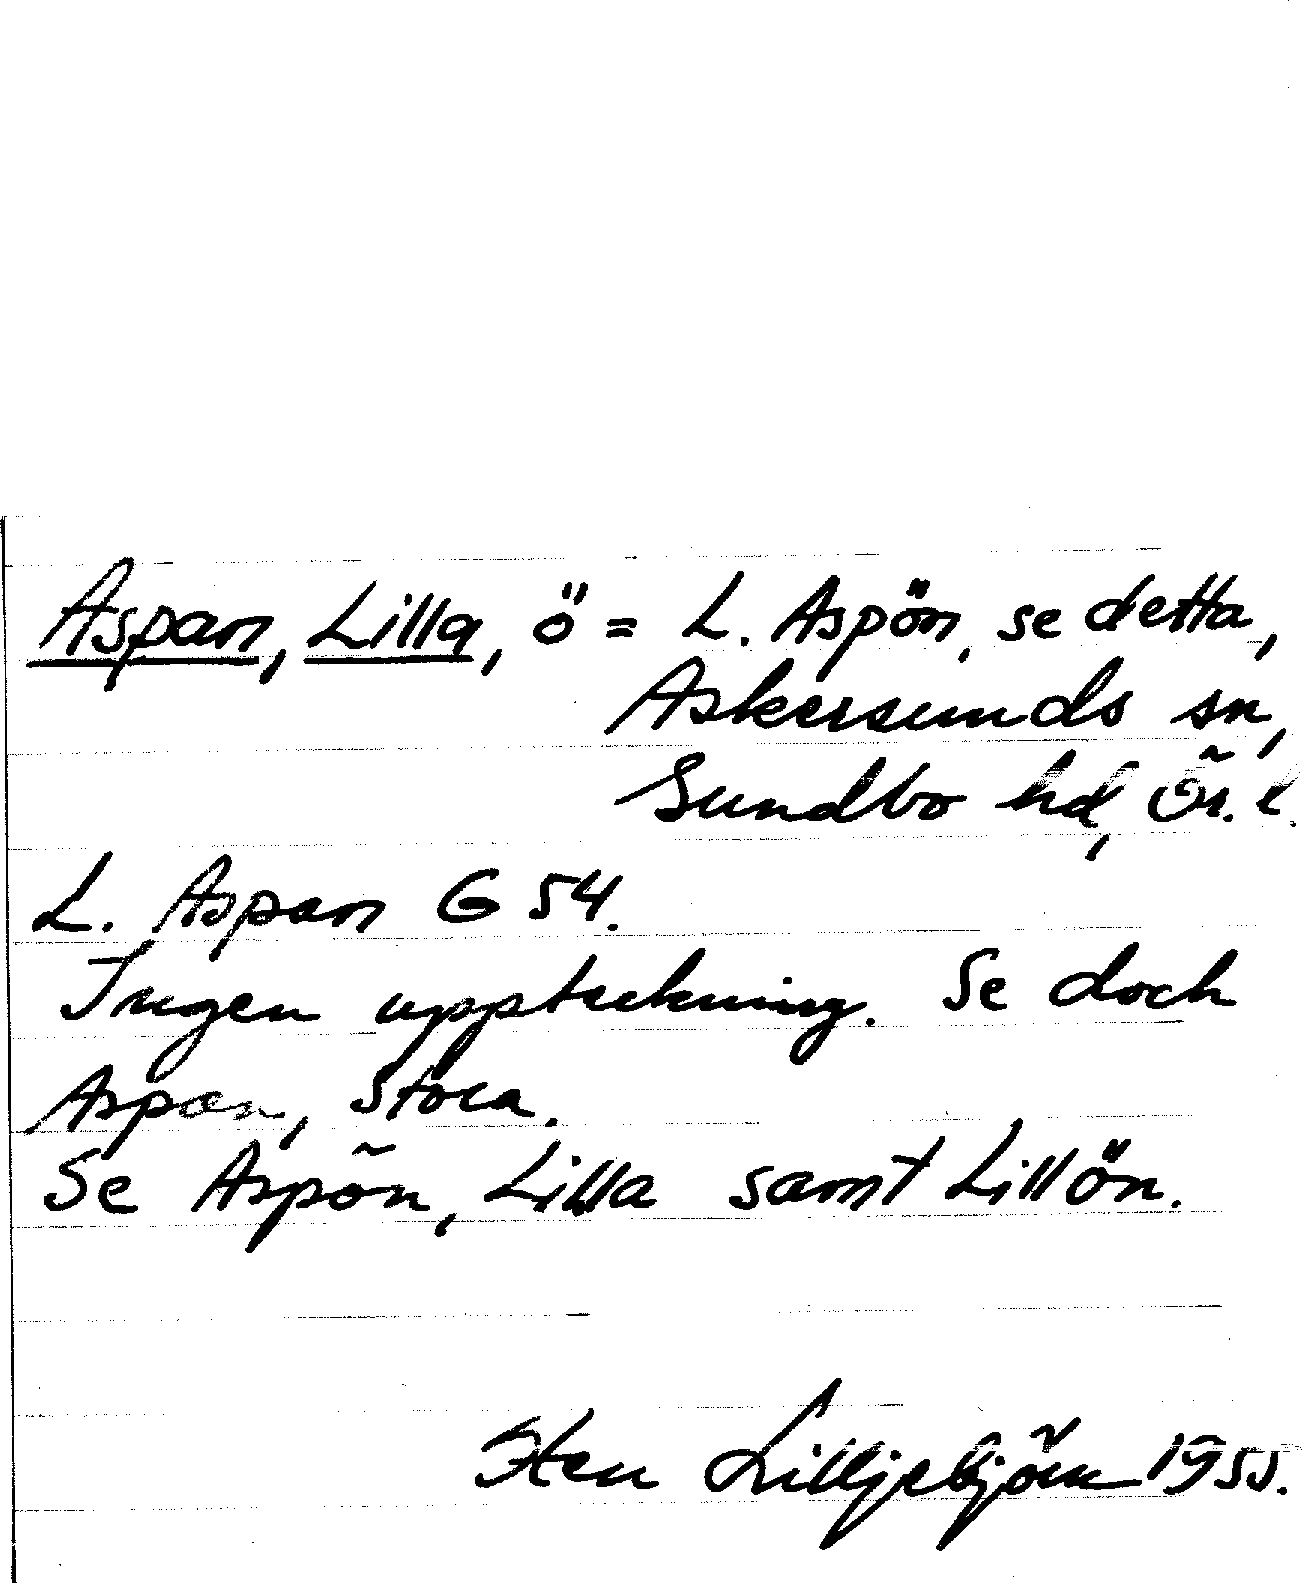 Aspan, Lilla, ö = L. Aspön, se detta,
Askersunds sn,
Sundbo hd, Ör. l.
L. Aspan G 54.
Ingen uppteckning. Se doch
Aspan, Stora.
Se Aspön, Lilla samt Lillön.
Sten Lilljebjörn 1955.